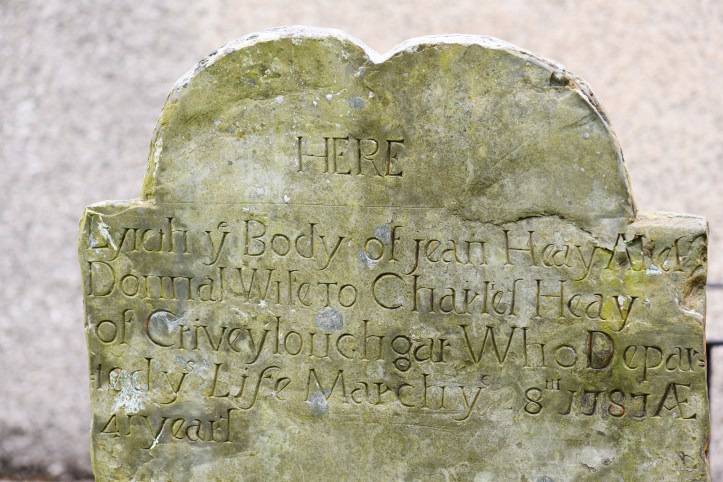 HERE
Lyeth yᵉ Body of Jean Heay Alies
Donnal Wife To Charles Heay
of Criveylouchgar Who Depar-
ted yⁱˢ Life March yᵉ 8ᵗʰ 1781 Æ
41 years